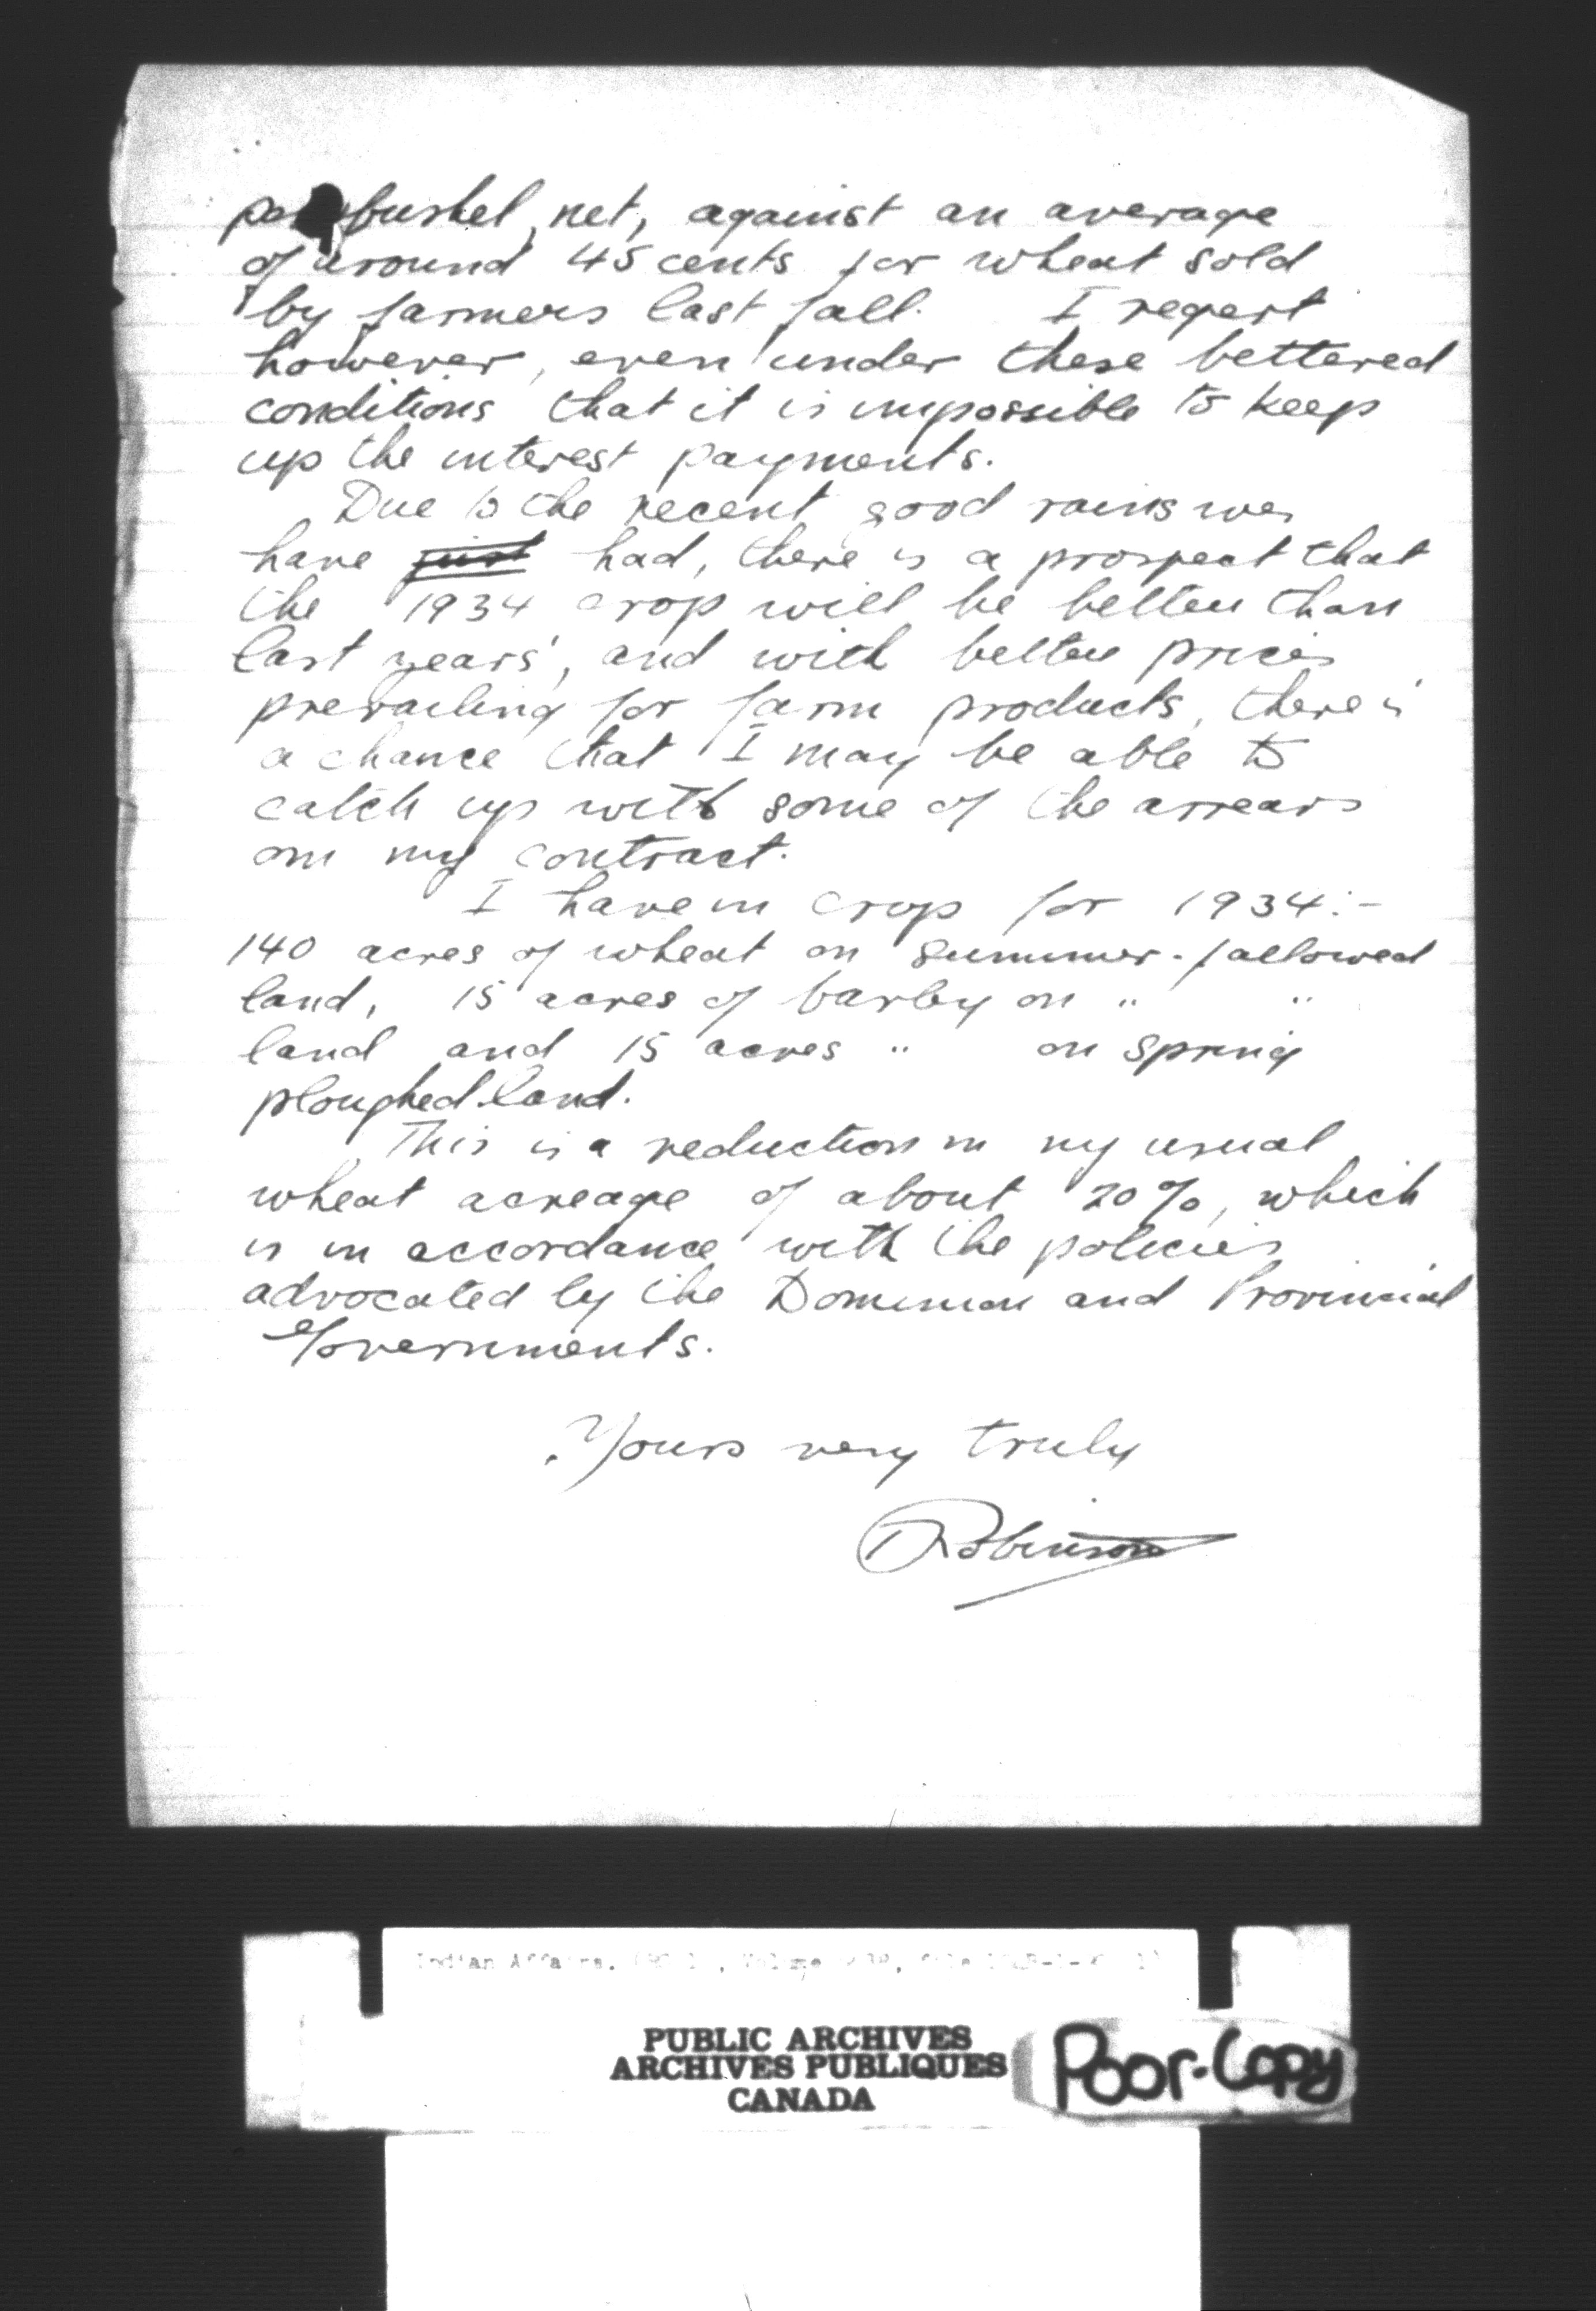 per bushel, net, against an average
of around 45 cents for wheat sold
by farmers last fall. I regert
however, even under these bettered
conditions that it is impossible to keep
up the interest payments.
Due to the recent good rains we
have just had, there is a prospect that
the 1934 crop will be better than
last years', and with better prices
prevailing for farm products, there is
a chance that I may be able to
catch up with some of the arrears
on my contract.
I have in crop for 1934:-
140 acres of wheat on summer-fallowed
land, 15 acres of barley on " "
land and 15 acres " on spring
ploughed land.
This is a reduction in my usual
wheat acreage of about 20%, which
is in accordance with the policies
advocated by the Dominion and Provincial
Governments.
Yours very truly
Robinson
Indian Affairs.
PUBLIC ARCHIVES
ARCHIVES PUBLIQUES
CANADA
Poor-Copy